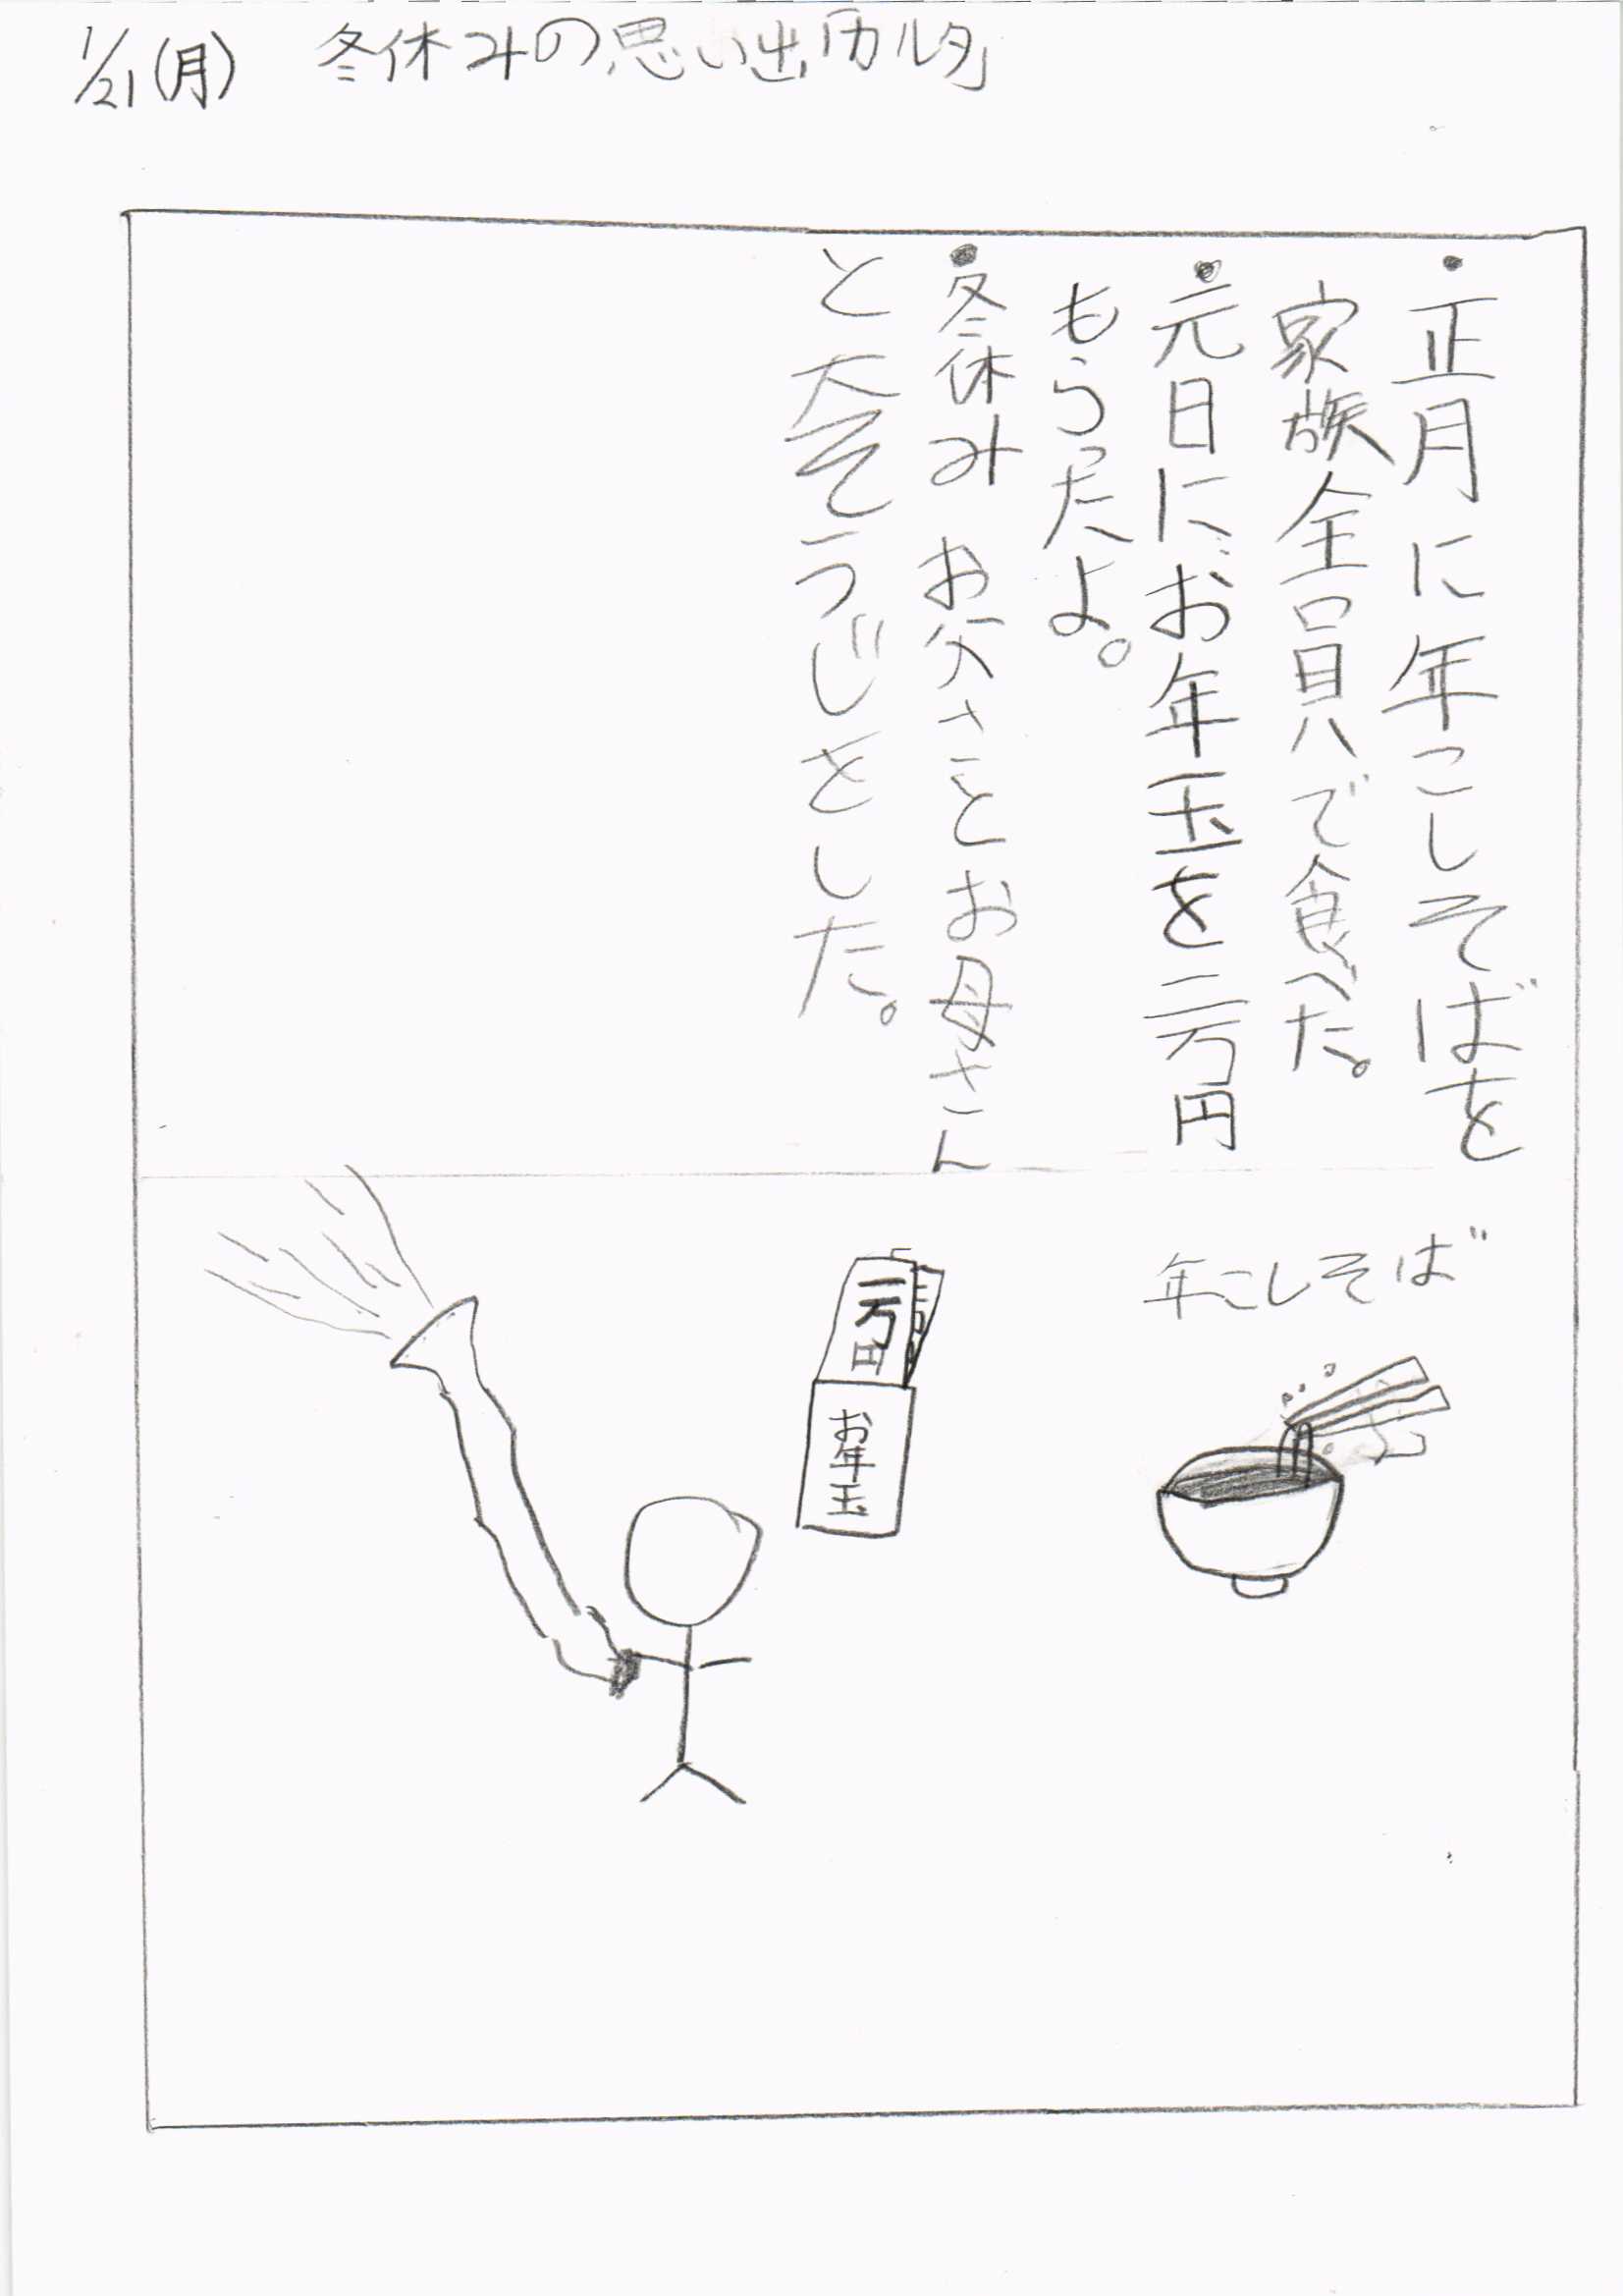 1/21(月) 冬休みの思い出「カルタ」
・正月に年こしそばを
家族全員で食べた。
・元日にお年玉を二万円
もらったよ。
・冬休みお父さんとお母さん
と大そうじをした。
年こしそば
一万円
お年玉